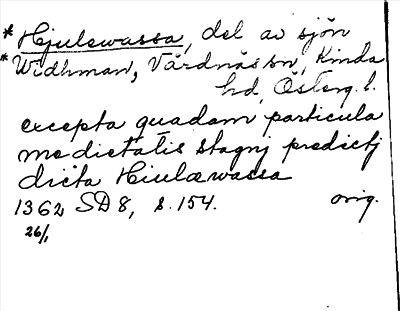 *Hjulewassa, del av sjön
*Widhman, Vårdnäs sn, Kinda
hd, Österg. l.
excepta quadam particula
medietatis stagnj predictj
dicta Hiulæwassa
1362 SD 8, s. 154. orig.
26/1